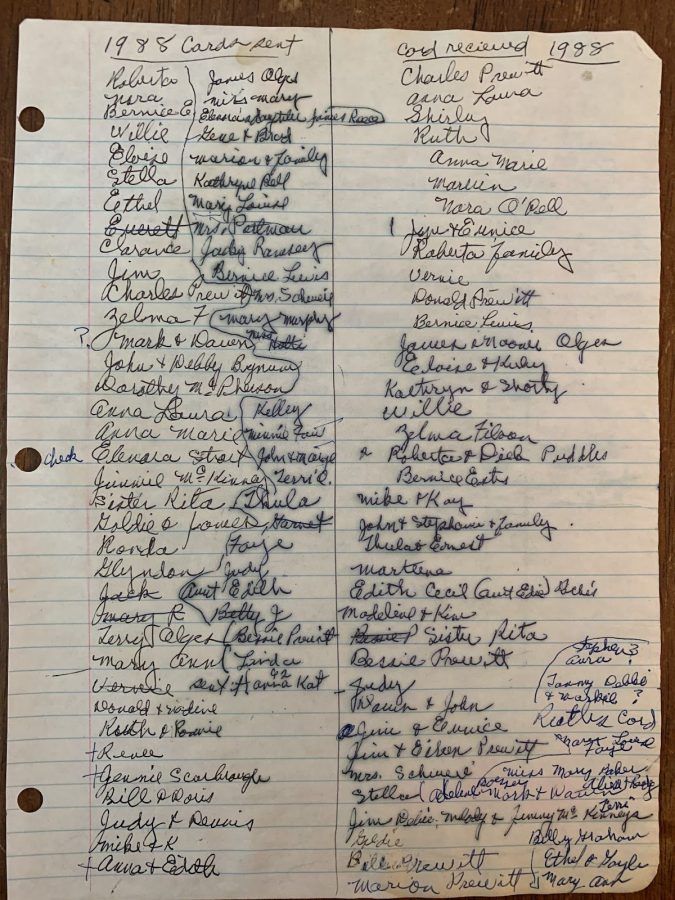 1988 Cards sent
Roberta
Nora
Bernice E
Willie
Eloise
Stella
Ethel
Everett
Clarance
Jim
Charles Prewitt
Zelma F
? Mark & Dawn
John & Debby Bynum
Dorothy McPherson
Anna Laura
Anna Marie
check Elenora Strot
Jimmie McKinna
Sister Rita
Goldie & James
Ronda
Glyndon
Jack
Mary R
Terry Alger
Mary Ann
Vernie
Donald &
Ruth &
+ Renee
+ Jennie Scarbrough
Bill & Doris
Judy & Dennis
Mike & K
+ Anna & Edith
James Olges
Mrs. Mary
Elenora & daughter James
Gene & Brad
Marion & Family
Kathryne Bell
Mary Louise
Mrs. Pattman
Judy Ramsey
Bernice Lewis
Mrs. Schweie
Mary Murphy
Miss
Kelley
Minnie Fair
John & Marge
Terri
Thula
Garnet
Faye
Judy
Aunt Edith
Betty J
Bessie Prewitt
Linda
sent Hanna Kat
card recieved 1988
Charles Prewitt
Anna Laura
Shirley
Ruth
Anna Marie
Marvin
Nora O'Dell
1 Jim & Eunice
Roberta family
Vernie
Donald Prewitt
Bernice Lewis
James & Naomi Olges
Eloise & Ruby
Kathryn & Shorty
Willie
Zelma Filson
& Roberta & Dick Puddles
Bernice Ests
Mike & Kay
John & Stephanie & Family
Thula & Ernest
Marteena
Edith Cecil (Aunt Edie)
Madeline & Kim
Bessie P Sister Rita
Bessie Prewitt
Judy
Dawn & John
Jim & Eunice
Jim & Eileen Prewitt
Mrs. Schweie
Stella
Mark & Dawn
Jim Debie, Melody & Jimmy McKinneys
Goldie
Bill Prewitt
Marion Prewitt
Stephen 3
Aura ?
Tammy Debbie
& ?
Mary Louise
Faye
Miss Mary Baker
Terri
Billy Graham
Ethel & Gayle
Mary Ann